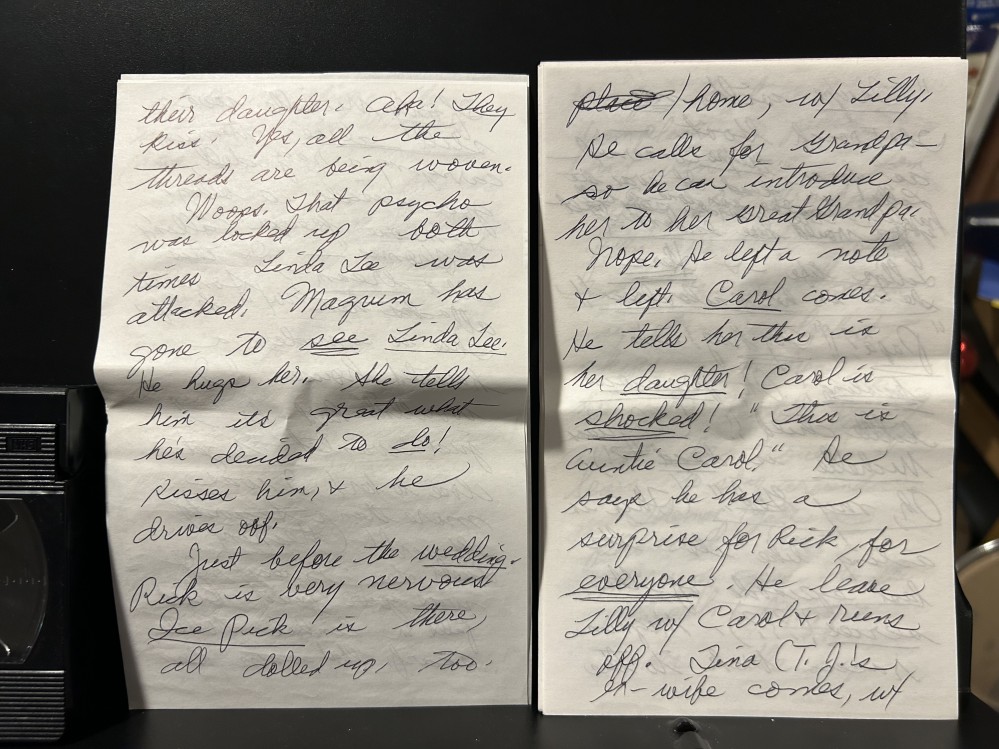 their daughter. Aha! They
kiss. Yes, all the
threads are being woven.
Woops. That psycho
was locked up both
times Linda Lee was
attacked. Magnum has
gone to see Linda Lee.
He hugs her. She tells
him it's great what
he's decided to do!
Kisses him, & he
drives off.
Just before the wedding.
Rick is very nervous
Ice Pick is there,
all dolled up, too.
place / home, w/ Lilly.
He calls for Grandpa-
so he can introduce
her to her Great Grandpa.
Nope. He left a note
& left. Carol comes.
He tells her this is
her daughter! Carol is
shocked! "This is
Auntie Carol." He
says he has a
surprise for Rick, for
everyone. He leave
Lilly w/ Carol & runs
off. Tina (T. J.'s
ex-wife comes, w/